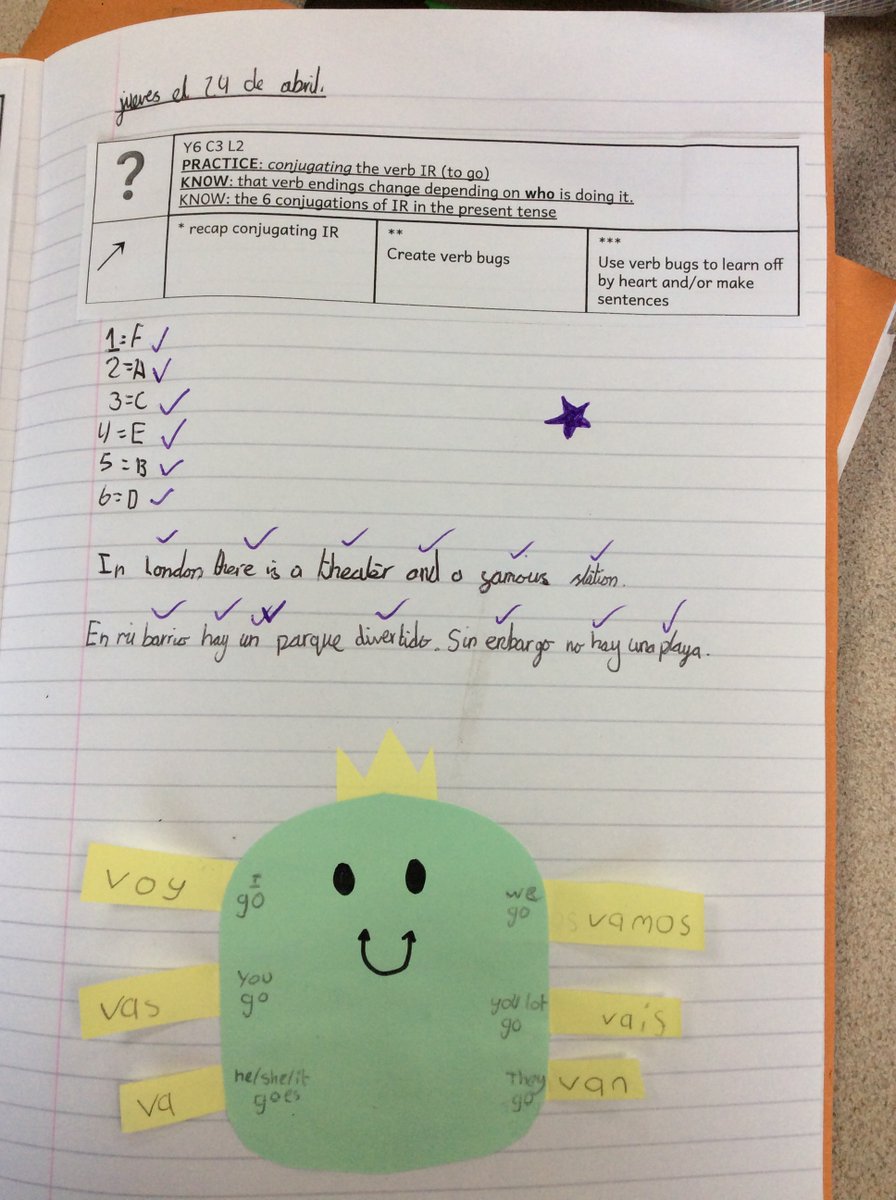 jueves el 24 de abril.
?
Y6 C3 L2
PRACTICE: conjugating the verb IR (to go)
KNOW: that verb endings change depending on who is doing it.
KNOW: the 6 conjugations of IR in the present tense
* recap conjugating IR
**
Create verb bugs
***
Use verb bugs to learn off
by heart and/or make
sentences
1=F
2=A
3=C
4=E
5=B
6=D
In London there is a theater and a famous station.
En mi barrio hay un parque divertido. Sin enbargo no hay una playa.
voy
I
go
vas
you
go
va
he/she/it
goes
we
go
vamos
you lot
go
vais
They
go
van